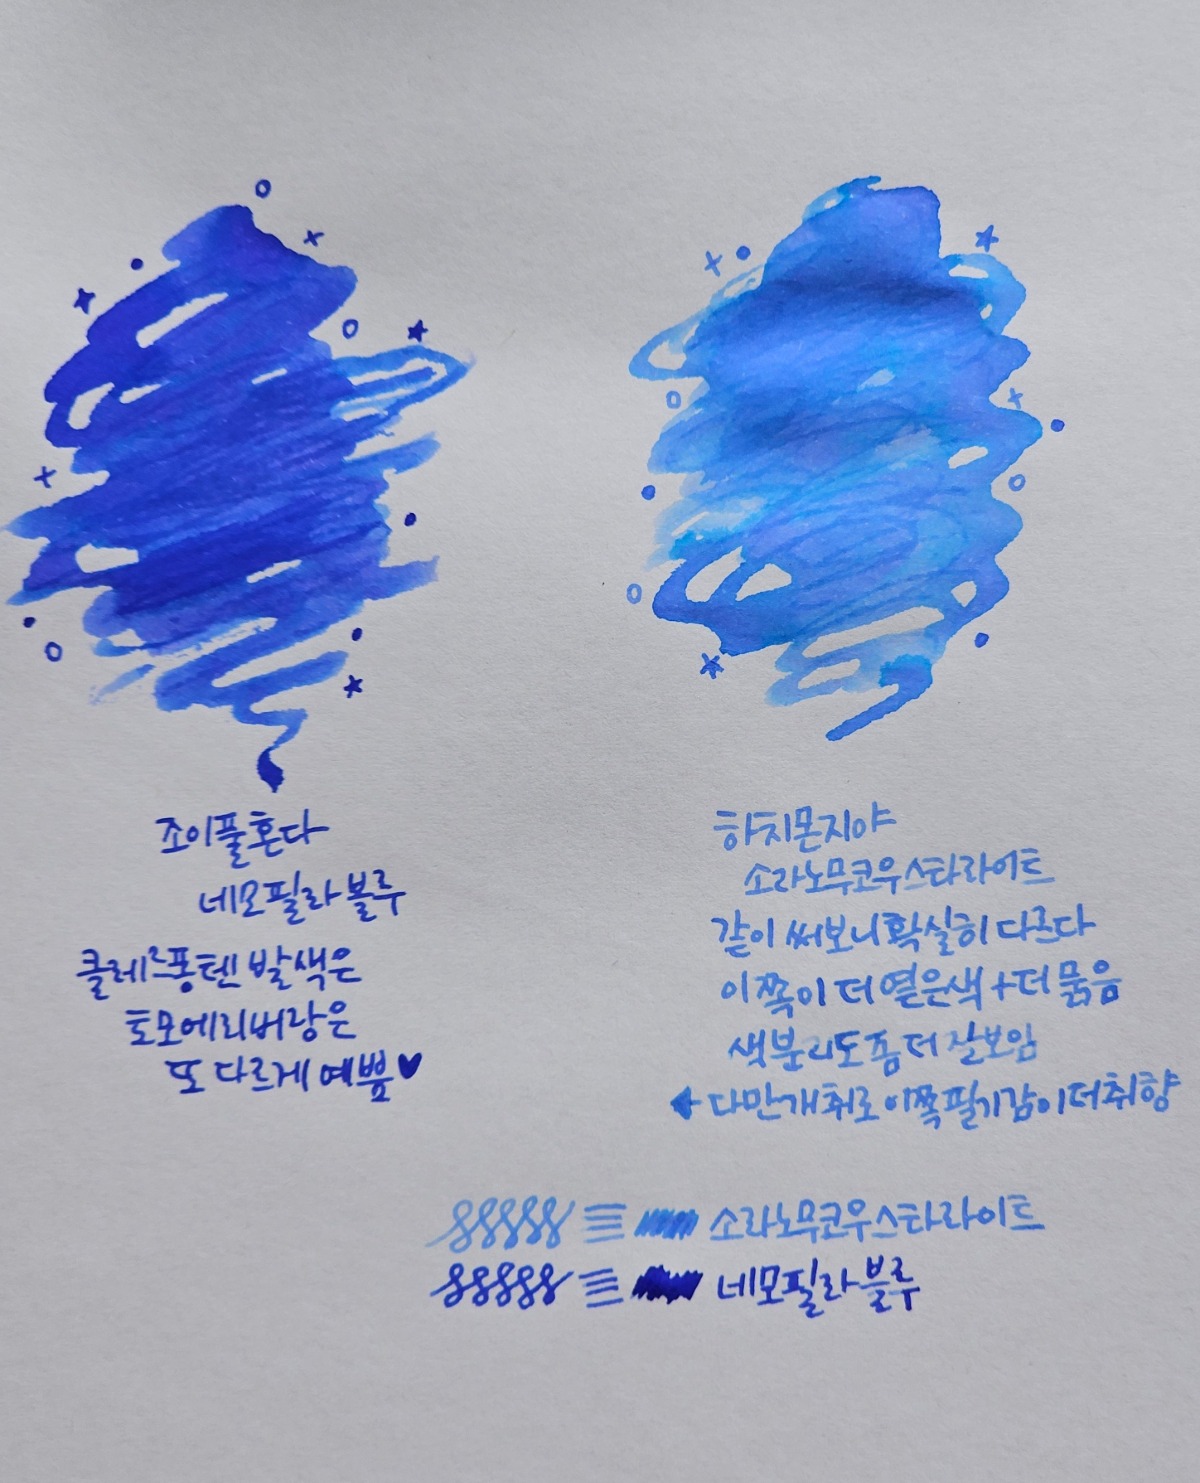 조이풀혼다
네모필라 블루
클레르퐁텐 발색은
토모에리버랑은
또 다르게 예쁨♥
하치몬지야
소라노무코우스타라이트
같이 써보니 확실히 다르다
이쪽이 더 옅은색 + 더 묽음
색분리도 좀 더 잘보임
다만 개취로 이쪽 필기감이 더 취향
소라노무코우스타라이트
네모필라 블루